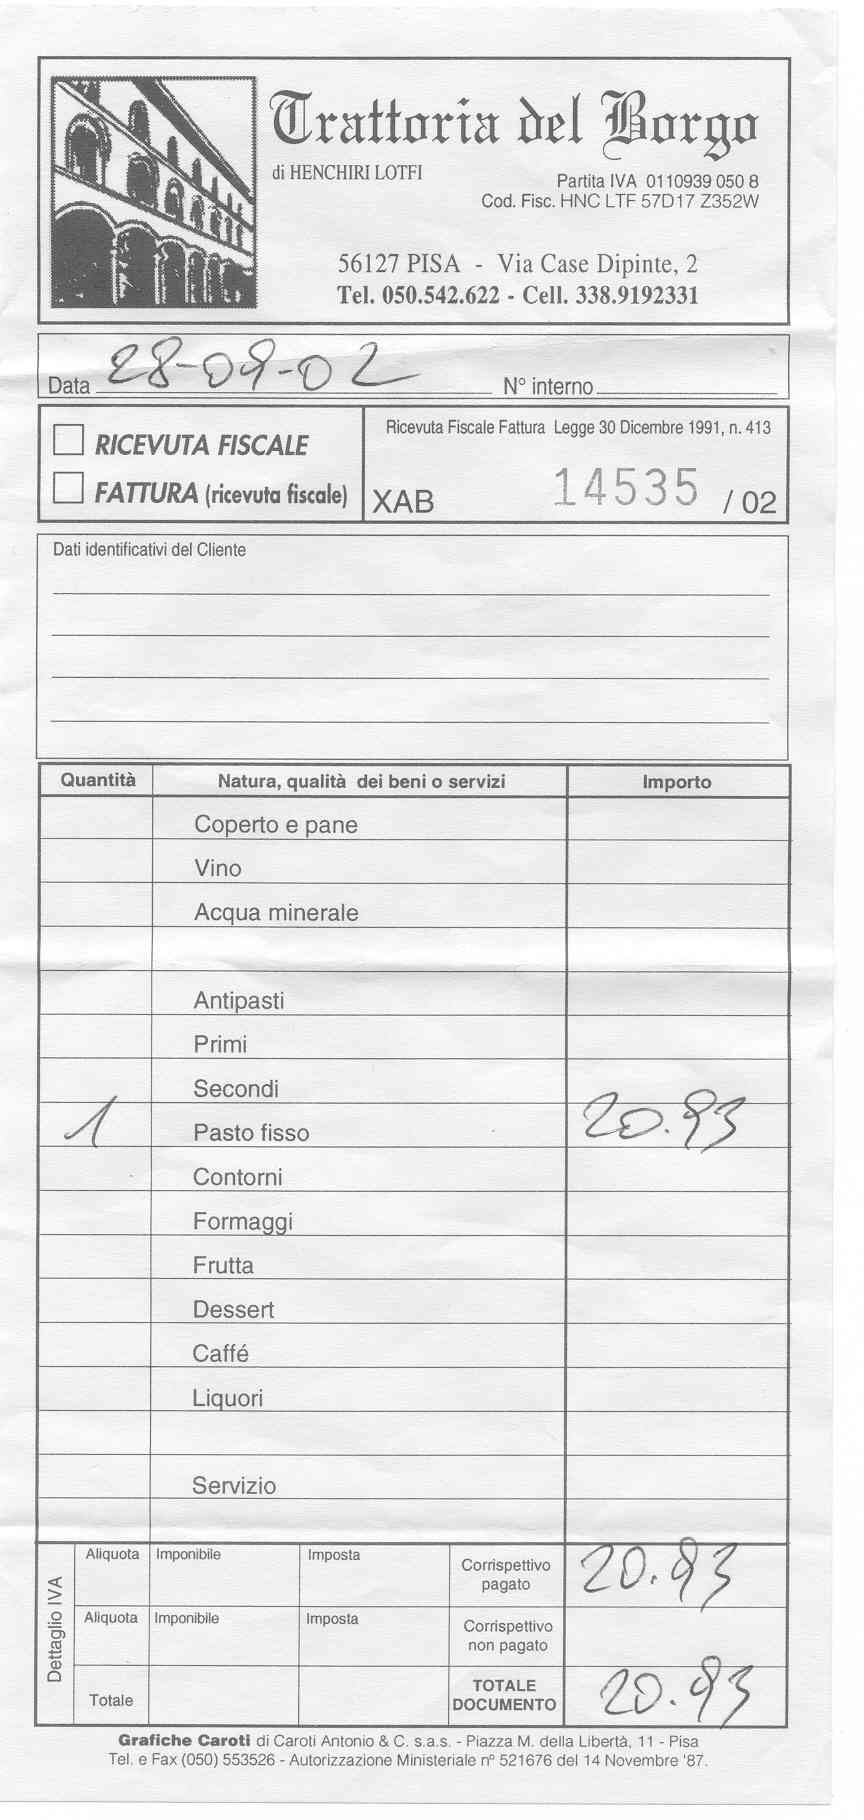 Trattoria del Borgo
di HENCHIRI LOTFI
Partita IVA 0110939 050 8
Cod. Fisc. HNC LTF 57D17 Z352W
56127 PISA - Via Case Dipinte, 2
Tel. 050.542.622 - Cell. 338.9192331
Data 28-09-02 N° interno
RICEVUTA FISCALE
FATTURA (ricevuta fiscale)
Ricevuta Fiscale Fattura Legge 30 Dicembre 1991, n. 413
XAB 14535 / 02
Dati identificativi del Cliente
Quantità Natura, qualità dei beni o servizi Importo
Coperto e pane
Vino
Acqua minerale
Antipasti
Primi
Secondi
1 Pasto fisso 20.93
Contorni
Formaggi
Frutta
Dessert
Caffé
Liquori
Servizio
Dettaglio IVA
Aliquota Imponibile Imposta Corrispettivo pagato 20.93
Aliquota Imponibile Imposta Corrispettivo non pagato
Totale TOTALE DOCUMENTO 20.93
Grafiche Caroti di Caroti Antonio & C. s.a.s. - Piazza M. della Libertà, 11 - Pisa
Tel. e Fax (050) 553526 - Autorizzazione Ministeriale n° 521676 del 14 Novembre '87.